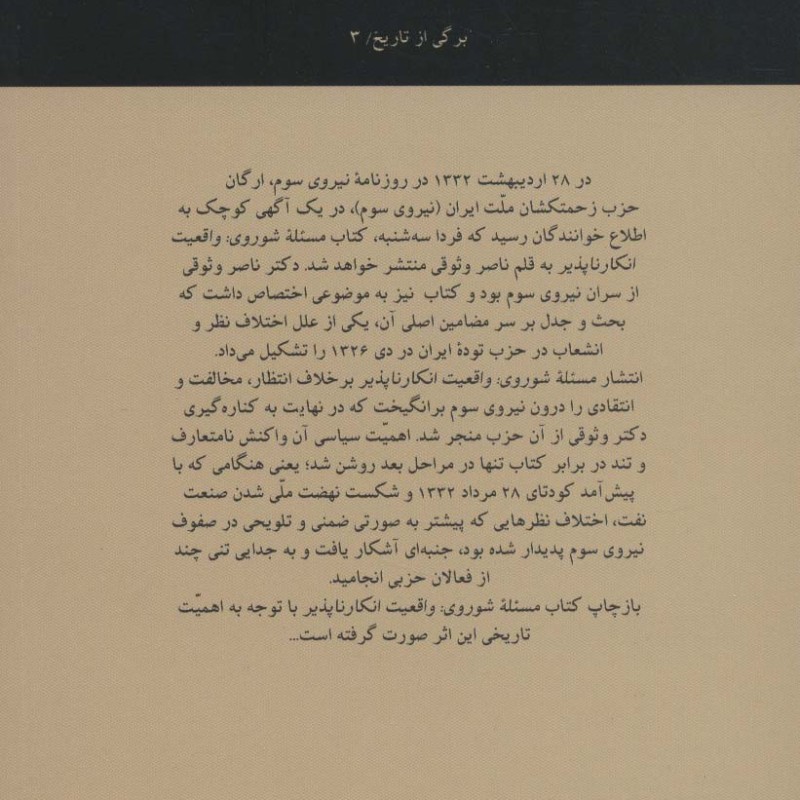 برگی از تاریخ/ ۳
در ۲۸ اردیبهشت ۱۳۳۲ در روزنامهٔ نیروی سوم، ارگان
حزب زحمتکشان ملّت ایران (نیروی سوم)، در یک آگهی کوچک به
اطلاع خوانندگان رسید که فردا سه‌شنبه، کتاب مسئلهٔ شوروی: واقعیت
انکارناپذیر به قلم ناصر وثوقی منتشر خواهد شد. دکتر ناصر وثوقی
از سران نیروی سوم بود و کتاب نیز به موضوعی اختصاص داشت که
بحث و جدل بر سر مضامین اصلی آن، یکی از علل اختلاف نظر و
انشعاب در حزب تودهٔ ایران در دی ۱۳۲۶ را تشکیل می‌داد.
انتشار مسئلهٔ شوروی: واقعیت انکارناپذیر برخلاف انتظار، مخالفت و
انتقادی را درون نیروی سوم برانگیخت که در نهایت به کناره‌گیری
دکتر وثوقی از آن حزب منجر شد. اهمیّت سیاسی آن واکنش نامتعارف
و تند در برابر کتاب تنها در مراحل بعد روشن شد؛ یعنی هنگامی که با
پیش‌آمد کودتای ۲۸ مرداد ۱۳۳۲ و شکست نهضت ملّی شدن صنعت
نفت، اختلاف نظرهایی که پیشتر به صورتی ضمنی و تلویحی در صفوف
نیروی سوم پدیدار شده بود، جنبه‌ای آشکار یافت و به جدایی تنی چند
از فعالان حزبی انجامید.
بازچاپ کتاب مسئلهٔ شوروی: واقعیت انکارناپذیر با توجه به اهمیّت
تاریخی این اثر صورت گرفته است...